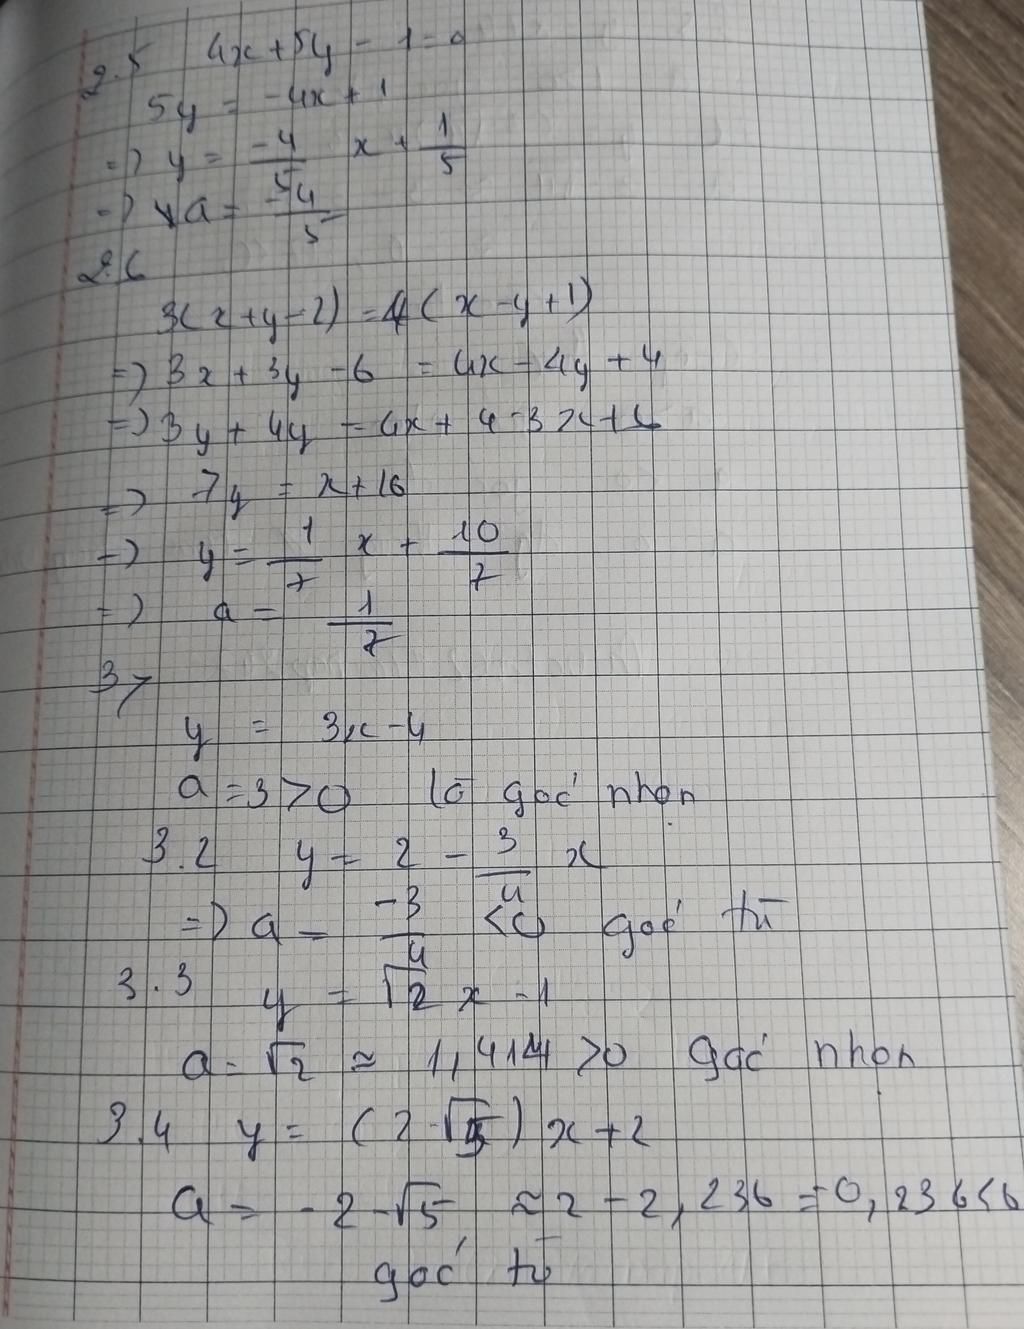 2.5 4x + 5y - 1 = 0
5y = -4x + 1
=) y = -4/5 x + 1/5
=) a = -4/5
2.6
3(x + y - 2) = 4(x - y + 1)
=) 3x + 3y - 6 = 4x - 4y + 4
=) 3y + 4y = 4x + 4 - 3x + 6
=) 7y = x + 10
=) y = 1/7 x + 10/7
=) a = 1/7
3,
y = 3x - 4
a = 3 > 0 là góc nhọn
3.2 y = 2 - 3/4 x
=) a = -3/4 < 0 góc tù
3.3 y = √2 x - 1
a = √2 ≈ 1,414 > 0 góc nhọn
3.4 y = (2 - √5) x + 2
a = -2 - √5 ≈ 2 - 2,236 = -0,236 < 0
góc tù